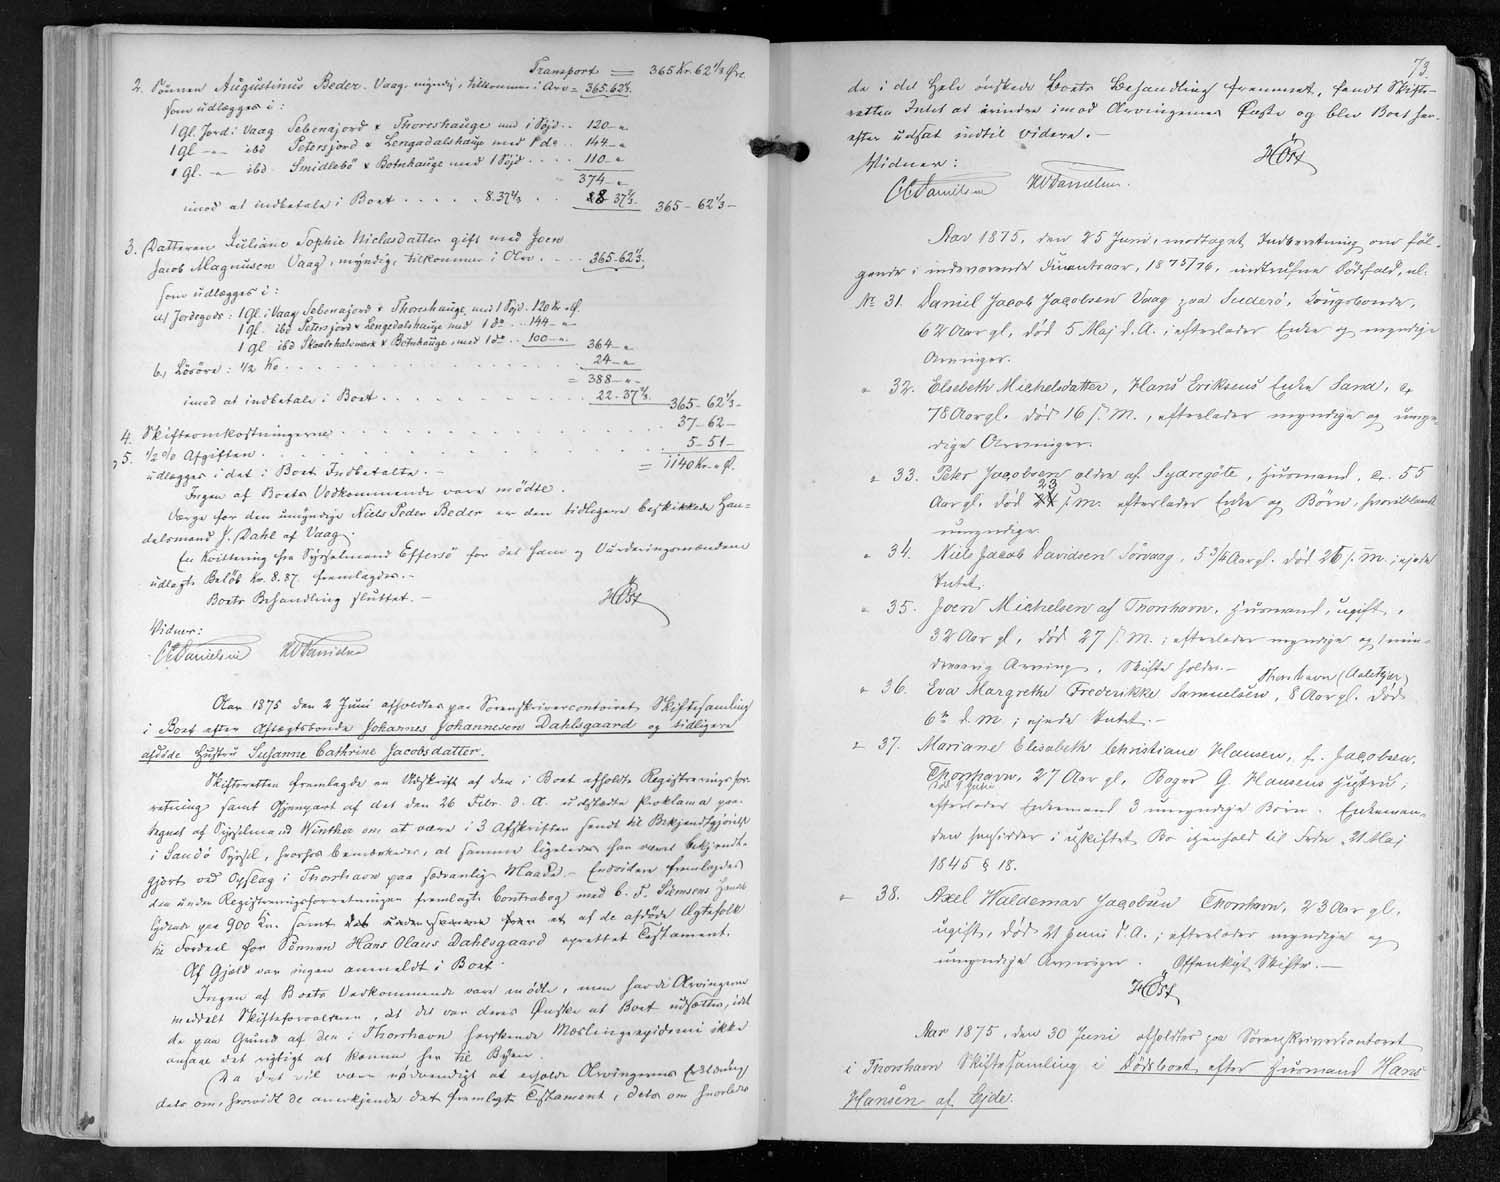 Transport = 365 Kr. 62 1/3 Øre
2. Sönnen Augustinus Beder, Vaag, myndig, tilkommer i Arv = 365-62 1/3.
som udlægges i:
1 Gl. Jord i Vaag Sebenajord & Thoreshauge med 1 Söjd .. 120-„
1 Gl -„- ibd Petersjord & Lengadalshauge med 1 do .. 144-„
1 Gl. -„- ibd. Smidlebö & Botnhauge med 1 Söjd .... 110-„
374-„
imod at indbetale i Boet ..... 8.37 2/3 .. 8 37 2/3. 365-62 1/3-
3. Datteren Juliane Sophie Niclasdatter gift med Joen
Jacob Magnusen Vaag, myndig, tilkommer i Arv .... 365-62 1/3.
som udlægges i:
a, Jordegods: 1 Gl. i Vaag Sebenajord & Thoreshauge, med 1 Söjd. 120 Kr. „Ø.
1 Gl. ibd Petersjord & Lengedalshauge med 1 do .. 144-„-
1 Gl ibd Skaalhalsmark & Botnhauge, med 1 do .. 100-„. 364-„
b, Lösöre: 1/2 Ko ......... 24-„
= 388-„-
imod at indbetale i Boet ......... 22-37 2/3. 365-62 1/3-
4. Skifteomkostningerne ......... 37-62-
5. 1/2 % Afgiften ......... 5-51-
udlægges i det i Boet Indbetalte.- = 1140 Kr. „Ø.
Ingen af Boets Vedkommende vare mödte.
Værge for den umyndige Niels Peder Beder er den tidligere beskikkede Han-
delsmand J. Dahl af Vaag.
En Kvittering fra Sysselmand Effersö for det ham og Vurderingsmændene
udlagte Belöb Kr. 8.87. fremlagdes.-
Boets Behandling sluttet.-
HØst
Vidner:
CCDanielsen HDDanielsen
Aar 1875 den 2 Juni afholdtes paa Sorenskrivercontoiret Skiftesamling
i Boet efter Aftægtsbonde Johannes Johannesen Dahlsgaard og tidligere
afdöde Hustru Susanne Cathrine Jacobsdatter.
Skifteretten fremlagde en Udskrift af den i Boet afholdte Registreringsfor-
retning samt Gjenpart af det den 26 Febr. d. A. udstædte Proklama paa-
tegnet af Sysselmand Winther om at være i 3 Afskrifter sendt til Bekjendtgjörelse
i Sandö Syssel, hvorhos bemærkedes, at samme ligeledes har været bekjendt-
gjort ved Opslag i Thorshavn paa sædvanlig Maade.- Endvidere fremlagdes
den under Registreringsforretningen fremlagte Contrabog med C. F. Siemsens Handel
lydende paa 900 Kr. samt det under samme frem et af de afdöde Ægtefolk
til Fordeel for Sönnen Hans Olaus Dahlsgaard oprettet Testament.
Af Gjeld var ingen anmeldt i Boet.
Ingen af Boets Vedkommende vare mödte, men havde Arvingerne
meddelt Skifteforvalteren, at det var deres Ønske at Boet udsættes, idet
de paa Grund af den i Thorshavn herskende Mæslingeepidemi ikke
ansaae det rigtigt at komme her til Byen.
Da det vil være nødvendigt at erholde Arvingernes Erklæring
dels om, hvorvidt de anerkjende det fremlagte Testament, dels om hvorledes
73.
de i det Hele önskede Boets Behandling fremmet, fandt Skifte-
retten Intet at erindre imod Arvingernes Ønske og blev Boet her-
efter udsat indtil videre.-
HØst
Vidner:
CCDanielsen HDDanielsen.
Aar 1875, den 25 Juni, modtaget Indberetning om föl-
gende i indeværende Finantsaar, 1875/76, indtrufne Dödsfald, nl:
No 31. Daniel Jacob Jacobsen Vaag paa Suderö, Kongsbonde,
62 Aar gl, död 5 Maj d. A.; efterlader Enke og myndige
Arvinger.
„ 32. Elsebeth Michelsdatter, Hans Eriksens Enke Sand, ca
78 Aar gl. död 16 s. M., efterlader myndige og umyn-
dige Arvinger.
„ 33. Peter Jacobsen ældre af Sydregöte, Husmand, ca. 55
Aar gl. död 23 s. M. efterlader Enke og Börn, hvoriblandt
umyndige.
„ 34. Niels Jacob Davidsen Sörvaag, 5 3/4 Aar gl. död 26 s. M.; ejede
Intet.
„ 35. Joen Michelsen af Thorshavn, Husmand, ugift,
32 Aar gl, död 27 s. M.; efterlader myndige og min-
dreaarig Arving. Skifte holdes.-
„ 36. Eva Margrethe Frederikke Samuelsen, Thorshavn (Aaletjer) 8 Aar gl. död
6te d. M; ejede Intet.-
„ 37. Mariane Elisabeth Christiane Hansen, f. Jacobsen,
Thorshavn, 27 Aar gl, Bager G. Hansens Hustru;
död 9 Juni
efterlader Enkemand 3 umyndige Börn. Enkeman-
den hensidder i uskiftet Bo i henhold til Frdn. 21 Maj
1845 § 18.
„ 38. Axel Waldemar Jacobsen Thorshavn, 23 Aar gl,
ugift, död 21 Juni d. A.; efterlader myndige og
umyndige Arvinger. Offentligt Skifte.-
HØst
Aar 1875, den 30 Juni afholdtes paa Sorenskrivercontoret
i Thorshavn Skiftesamling i Dödsboet efter Husmand Hans
Hansen af Ejde.